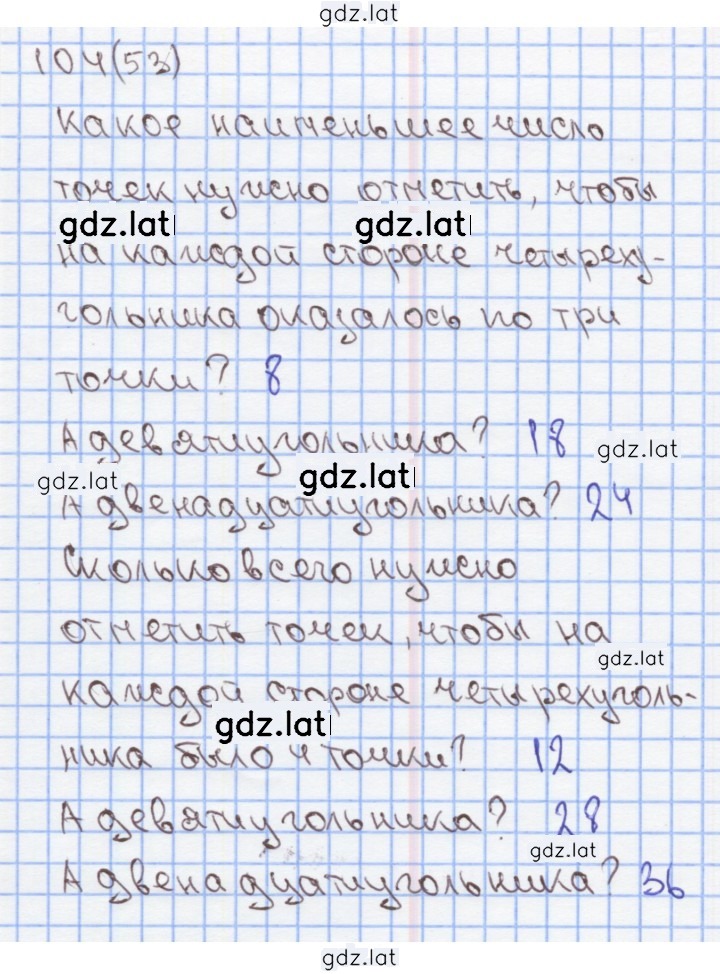 gdz.lat
104(53)
Какое наименьшее число
точек нужно отметить, чтобы
gdz.lat gdz.lat
на каждой стороне четыреху-
гольника оказалось по три
точки? 8
А девятиугольника? 18
gdz.lat
gdz.lat gdz.lat
А двенадцатиугольника? 24
Сколько всего нужно
отметить точек, чтобы на
gdz.lat
каждой стороне четырехуголь-
gdz.lat
ника было 4 точки? 12
А девятиугольника? 28
gdz.lat
А двенадцатиугольника? 36
gdz.lat